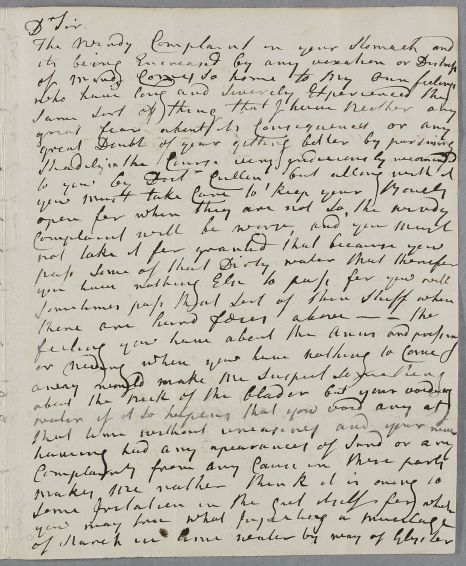 Dr Sir
The windy Complaint in your Stomach and
its being Encreased by any vexation or Distress
of mind Comes so home to my own feelings
who have long and severely Experienced the
same sort of thing that I have Neither any
great fear about its Consequences or any
great Doubt of your getting better by pursuing
Steadily the Course very judiciously recommend
to you by Doctr Cullen but along with it
you must take Care to keep your Bowels
open for when they are not so the windy
Complaint will be worse, and you must
not take it for granted that because you
pass some of that Dirty water that therefore
you have nothing Else to pass for you will
sometimes pass that sort of thin Stuff when
there are hard faeces above — — the
feeling you have about the Anus and pressing
or Needing when you have nothing to Come
away would make me suspect something
about the Neck of the Blader but your voiding
water if it so happens that you void any at
that time without uneasiness and your never
having had any apearances of Sand or any
Complaints from any Cause in these parts
makes me rather think it is owing to
some Irritation in the Gut itself for which
you may try what Injecting a Mucilage
of starch in Lime water by way of Glyster